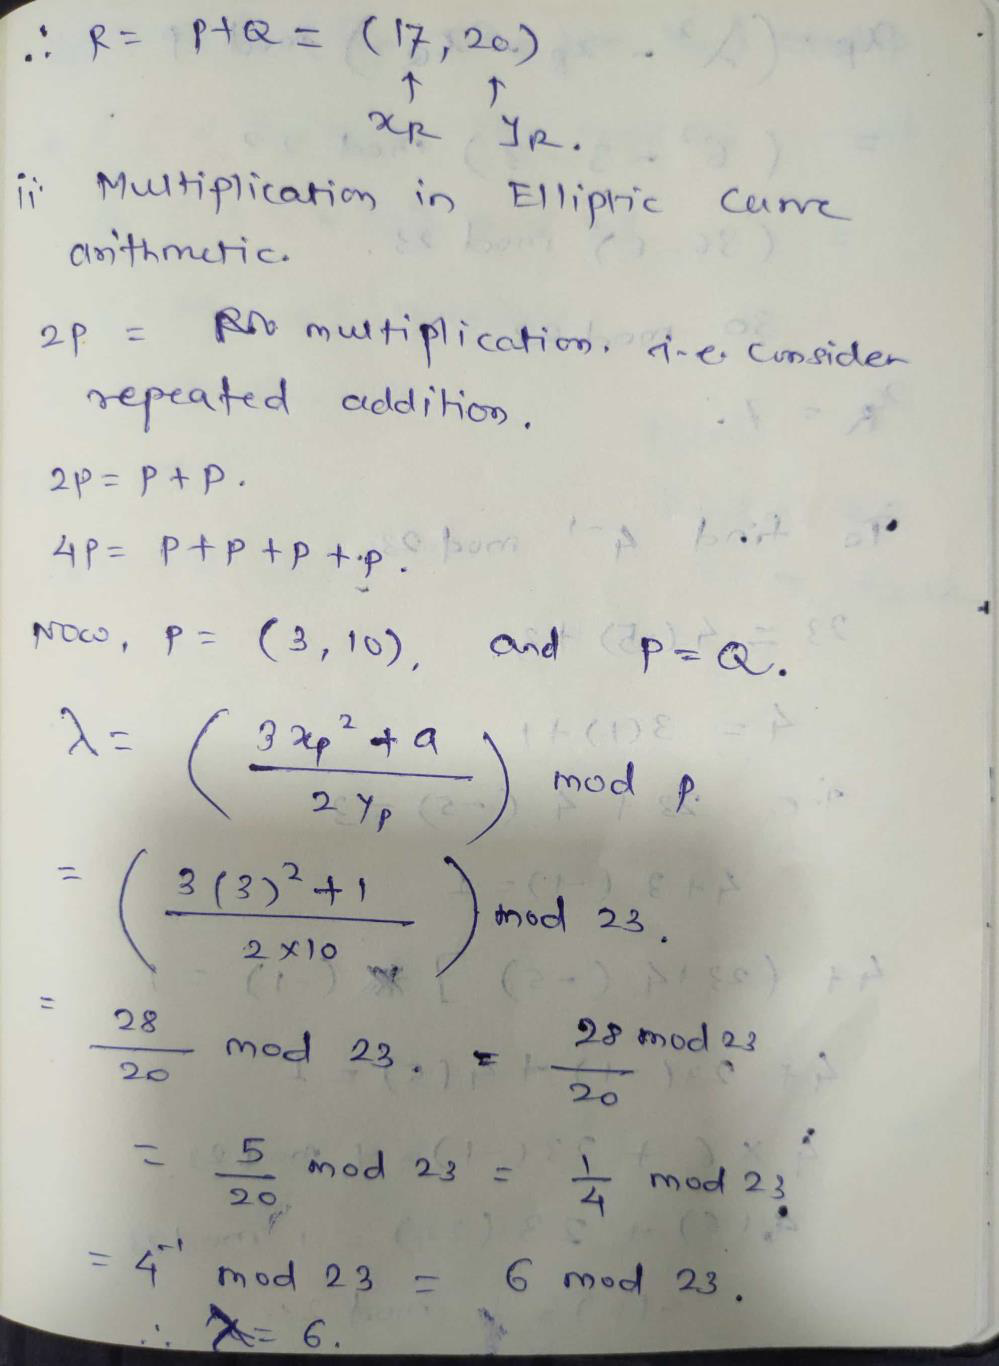 ∴ R = P+Q = (17, 20)
↑ ↑
xR yR.
ii Multiplication in Elliptic Curve
arithmetic.
2P = multiplication. i.e. consider
repeated addition.
2P = P + P.
4P = P + P + P + P.
Now, P = (3, 10), and P = Q.
λ = ( (3xp² + a) / (2yp) ) mod p.
= ( (3(3)² + 1) / (2×10) ) mod 23.
= 28/20 mod 23. = 28 mod 23 / 20
= 5/20 mod 23 = 1/4 mod 23.
= 4⁻¹ mod 23 = 6 mod 23.
∴ λ = 6.